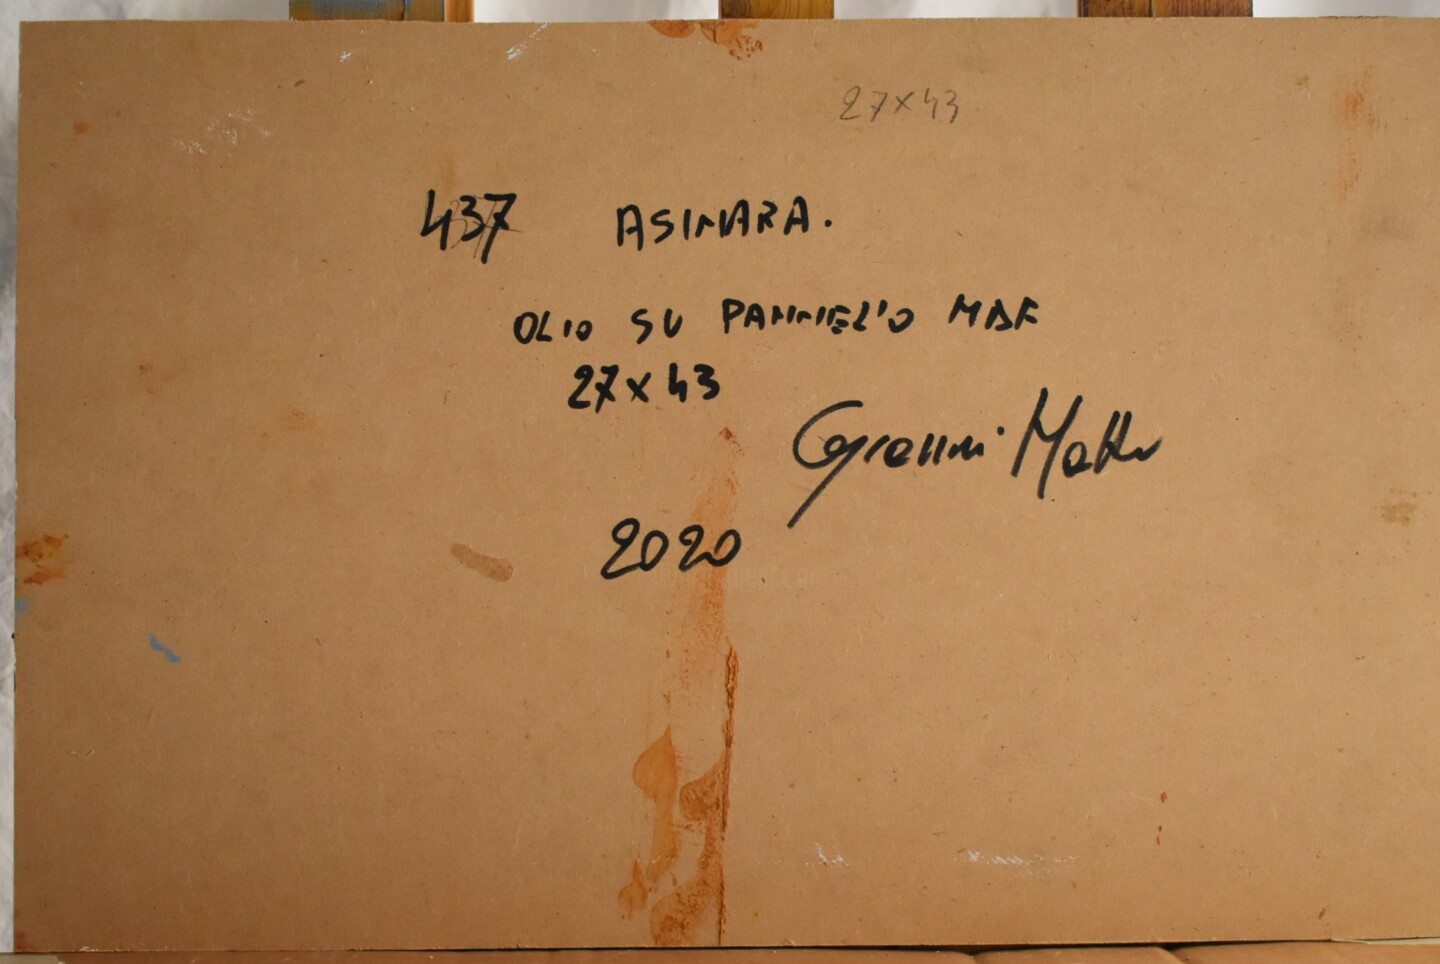 27x43
437 ASINARA.
OLIO SU PANNELLO MDF
27x43
Giovanni Mattu
2020